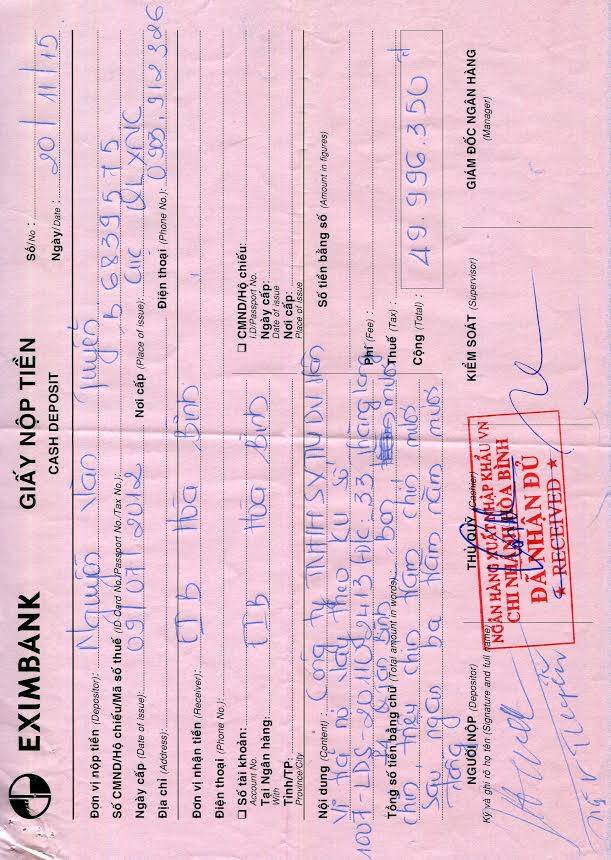 EXIMBANK
GIẤY NỘP TIỀN
CASH DEPOSIT
Số/No :
Ngày/Date : 20/11/15
Đơn vị nộp tiền (Depositor): Nguyễn Văn Tuyền
Số CMND/Hộ chiếu/Mã số thuế (ID Card No./Passport No./Tax No.): B 6839575
Ngày cấp (Date of issue): 09/07/2012 Nơi cấp (Place of issue): Cục QLXNC
Địa chỉ (Address): Điện thoại (Phone No.): 0903.912326
Đơn vị nhận tiền (Receiver): EIB Hòa Bình
Điện thoại (Phone No.):
Số tài khoản:
Account No.
Tại Ngân hàng: EIB Hòa Bình
With
Tỉnh/TP:
Province/City
CMND/Hộ chiếu:
I.D/Passport No.
Ngày cấp:
Date of issue
Nơi cấp:
Place of issue
Nội dung (Content): Công ty TNHH SX TM DV Văn
Vi trả nợ vay theo KU số
1007-LDS-201109413 Đ/c: 33 hàng long
Số tiền bằng số (Amount in figures)
Phí (Fee) :
Thuế (Tax) :
Cộng (Total) : 49.996.350 đ
Tổng số tiền bằng chữ (Total amount in words): bốn mươi
chín triệu chín trăm chín mươi
sáu ngàn ba trăm năm mươi
đồng
NGƯỜI NỘP (Depositor)
Ký và ghi rõ họ tên (Signature and full name)
THỦ QUỸ (Cashier)
KIỂM SOÁT (Supervisor)
GIÁM ĐỐC NGÂN HÀNG
(Manager)
NGÂN HÀNG XUẤT NHẬP KHẨU VN
CHI NHÁNH HÒA BÌNH
ĐÃ NHẬN ĐỦ
★ RECEIVED ★
Ng V Tuyền